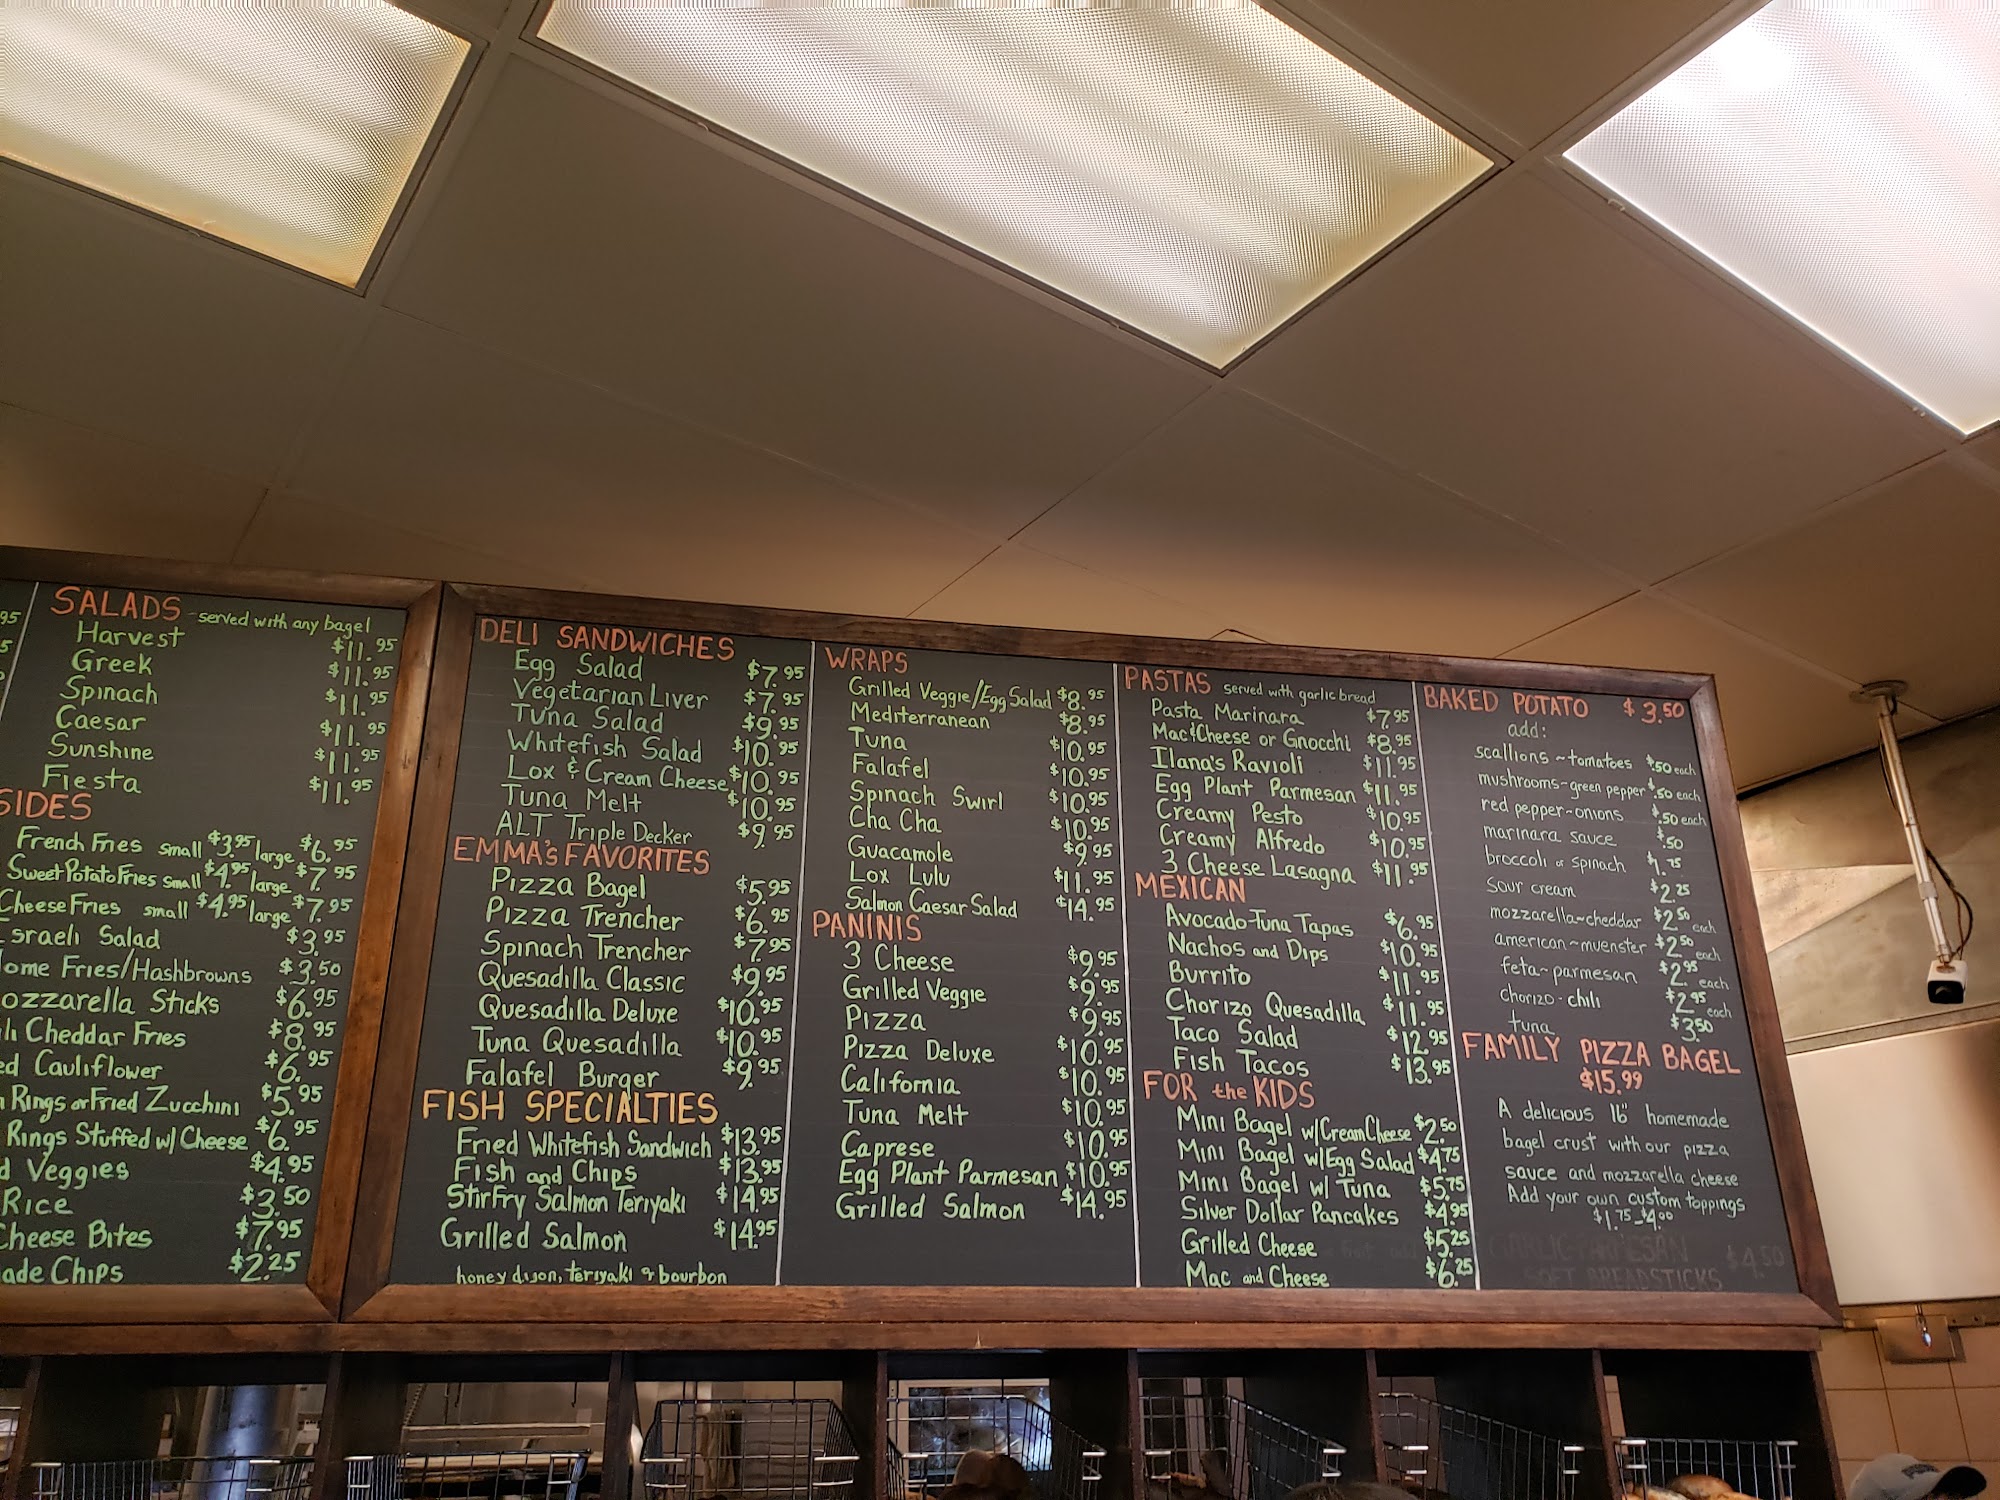 95
5
SALADS - served with any bagel
Harvest $11.95
Greek $11.95
Spinach $11.95
Caesar $11.95
Sunshine $11.95
Fiesta $11.95
SIDES
French Fries small $3.95 large $6.95
Sweet Potato Fries small $4.95 large $7.95
Cheese Fries small $4.95 large $7.95
Israeli Salad $3.95
ome Fries/Hashbrowns $3.50
ozzarella Sticks $6.95
li Cheddar Fries $8.95
ed Cauliflower $6.95
n Rings or Fried Zucchini $5.95
Rings Stuffed w/ Cheese $6.95
d Veggies $4.95
Rice $3.50
Cheese Bites $7.95
ade Chips $2.25
DELI SANDWICHES
Egg Salad $7.95
Vegetarian Liver $7.95
Tuna Salad $9.95
Whitefish Salad $10.95
Lox & Cream Cheese $10.95
Tuna Melt $10.95
ALT Triple Decker $9.95
EMMA's FAVORITES
Pizza Bagel $5.95
Pizza Trencher $6.95
Spinach Trencher $7.95
Quesadilla Classic $9.95
Quesadilla Deluxe $10.95
Tuna Quesadilla $10.95
Falafel Burger $9.95
FISH SPECIALTIES
Fried Whitefish Sandwich $13.95
Fish and Chips $13.95
StirFry Salmon Teriyaki $14.95
Grilled Salmon $14.95
honey dijon, teriyaki or bourbon
WRAPS
Grilled Veggie/Egg Salad $8.95
Mediterranean $8.95
Tuna $10.95
Falafel $10.95
Spinach Swirl $10.95
Cha Cha $10.95
Guacamole $9.95
Lox Lulu $11.95
Salmon Caesar Salad $14.95
PANINIS
3 Cheese $9.95
Grilled Veggie $9.95
Pizza $9.95
Pizza Deluxe $10.95
California $10.95
Tuna Melt $10.95
Caprese $10.95
Egg Plant Parmesan $10.95
Grilled Salmon $14.95
PASTAS served with garlic bread
Pasta Marinara $7.95
Mac&Cheese or Gnocchi $8.95
Ilana's Ravioli $11.95
Egg Plant Parmesan $11.95
Creamy Pesto $10.95
Creamy Alfredo $10.95
3 Cheese Lasagna $11.95
MEXICAN
Avocado-Tuna Tapas $6.95
Nachos and Dips $10.95
Burrito $11.95
Chorizo Quesadilla $11.95
Taco Salad $12.95
Fish Tacos $13.95
FOR the KIDS
Mini Bagel w/Cream Cheese $2.50
Mini Bagel w/Egg Salad $4.75
Mini Bagel w/ Tuna $5.75
Silver Dollar Pancakes $4.95
Grilled Cheese $5.25
Mac and Cheese $6.25
BAKED POTATO $3.50
add:
scallions ~ tomatoes $.50 each
mushrooms - green pepper $.50 each
red pepper - onions $.50 each
marinara sauce $.50
broccoli or spinach $1.75
sour cream $2.25
mozzarella - cheddar $2.50 each
american ~ muenster $2.50 each
feta - parmesan $2.95 each
chorizo - chili $2.95 each
tuna $3.50
FAMILY PIZZA BAGEL
$15.99
A delicious 16" homemade
bagel crust with our pizza
sauce and mozzarella cheese
Add your own custom toppings
$1.75 - $4.00
GARLIC PARMESAN $4.50
SOFT BREADSTICKS